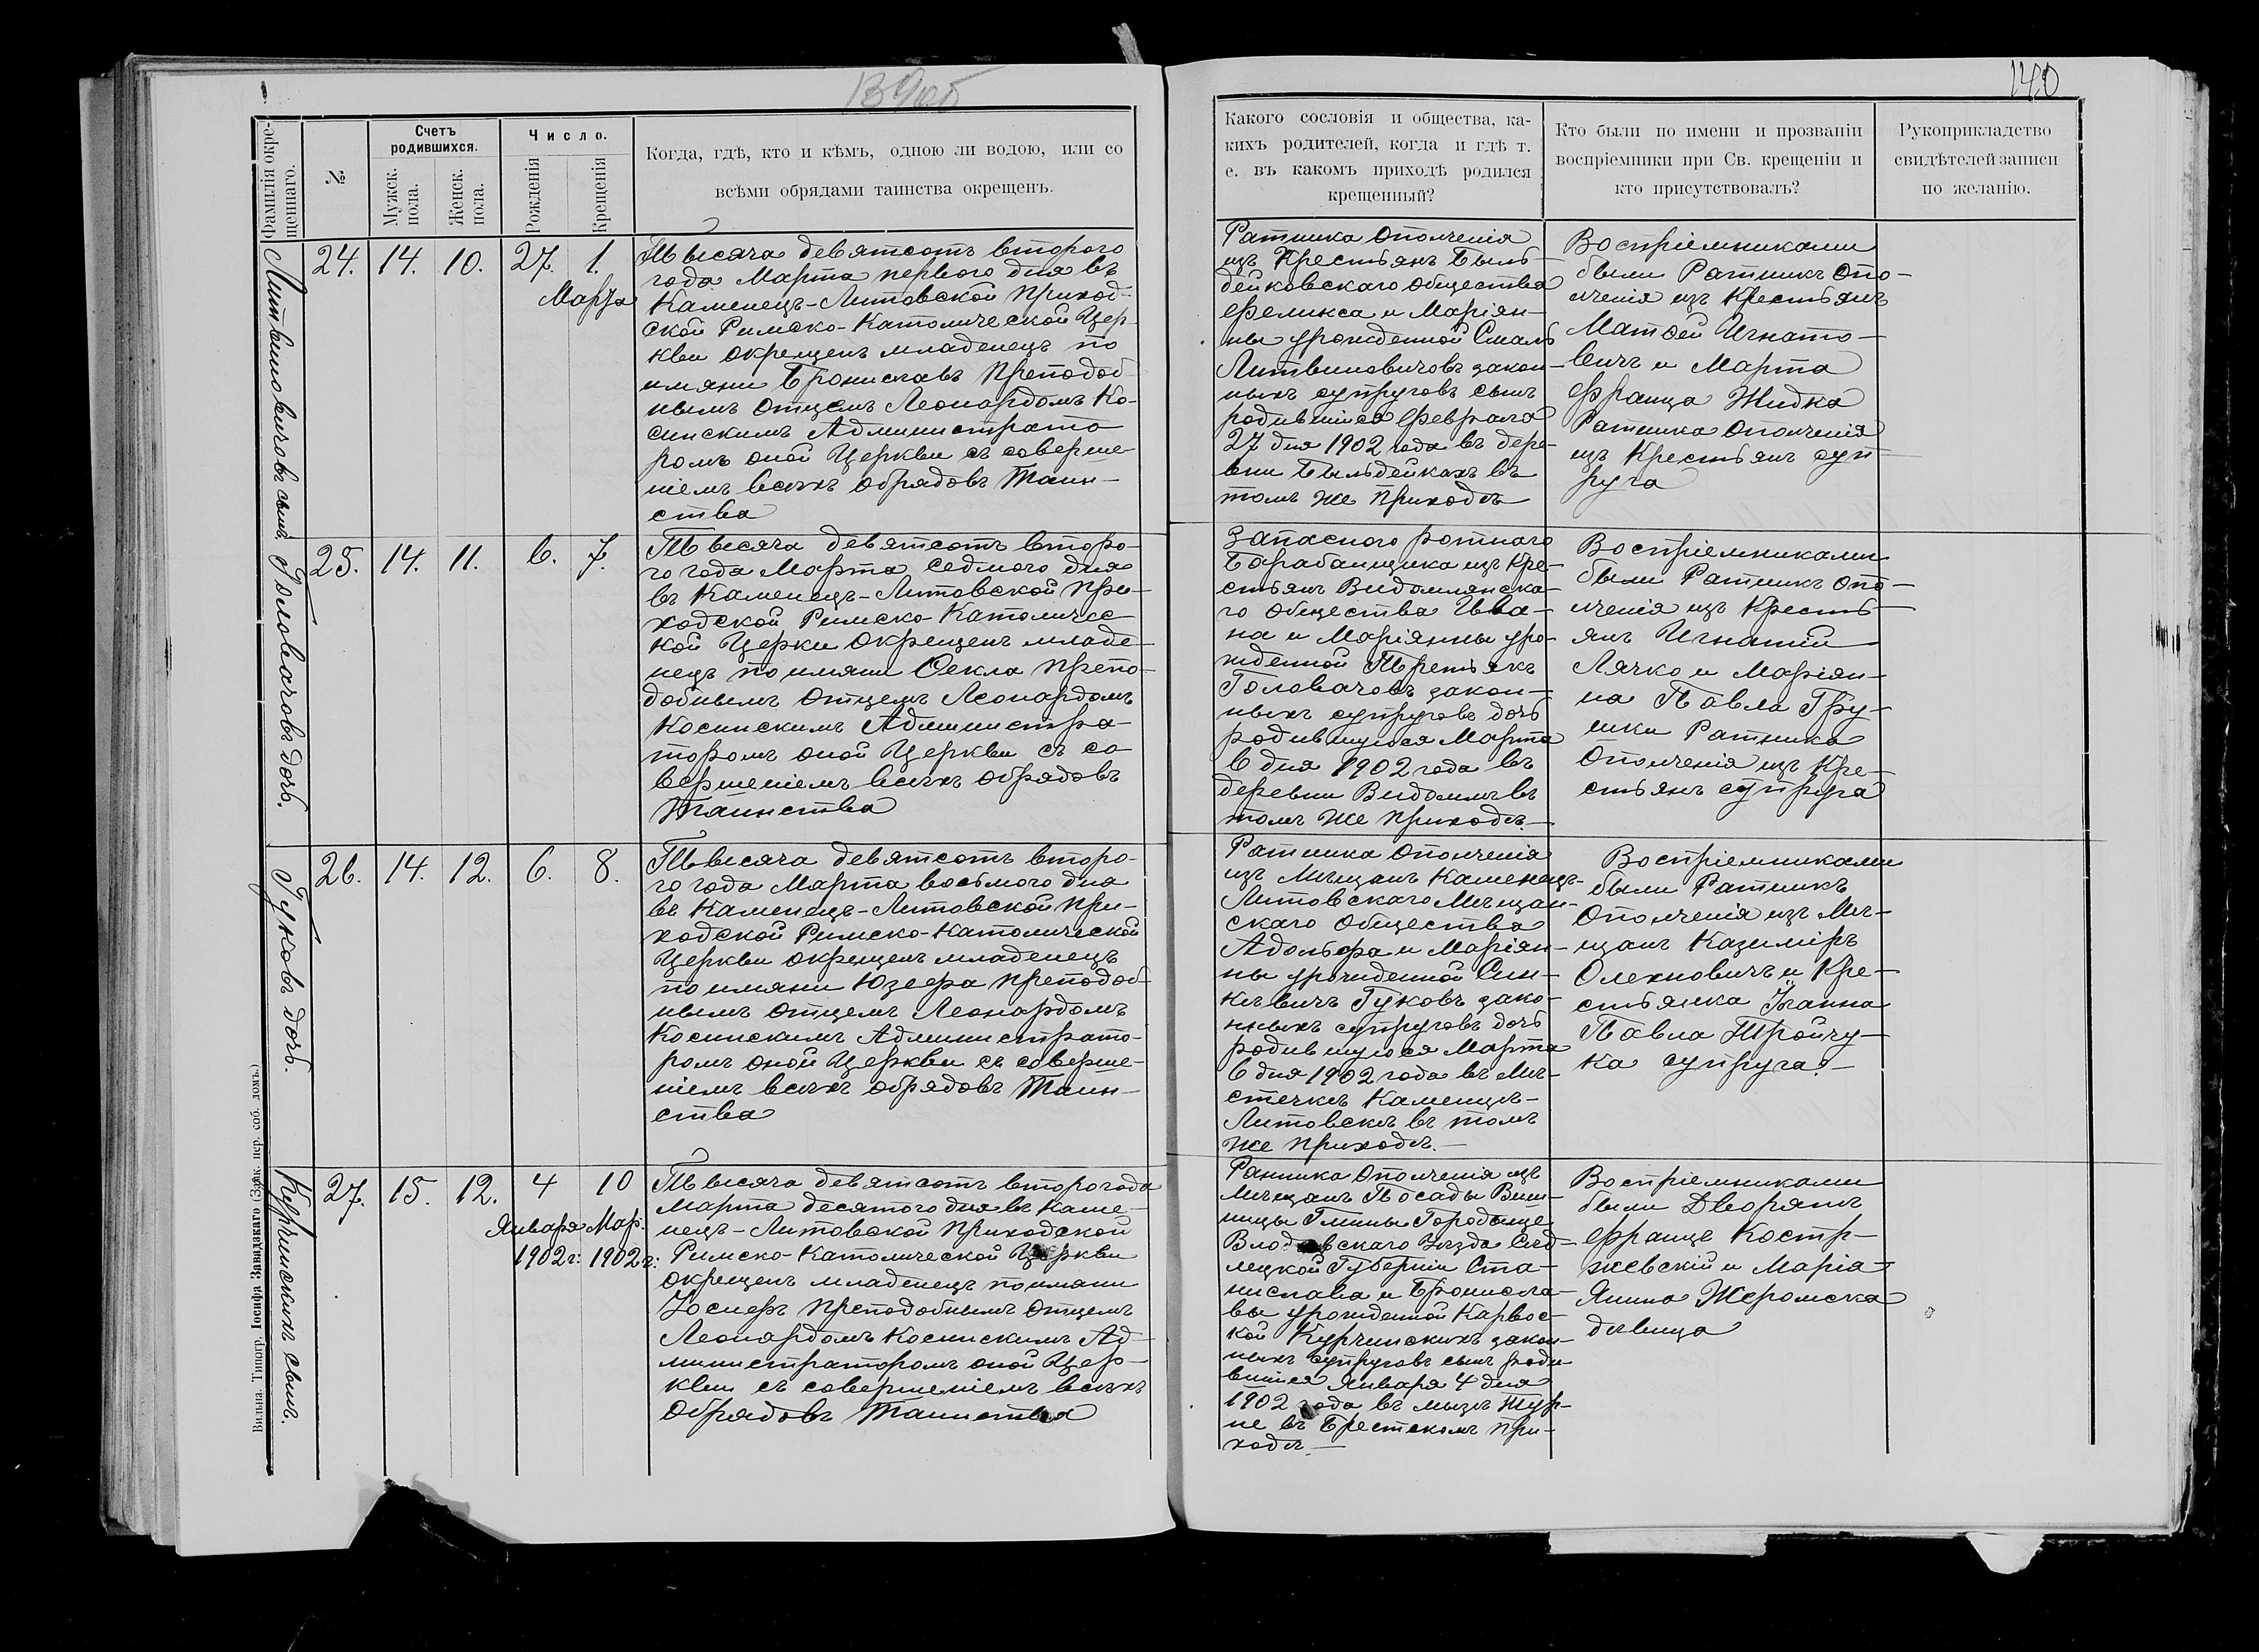 139об
140
Фамилія окрещеннаго.
№
Счетъ родившихся.
Мужск. пола.
Женск. пола.
Число.
Рожденія
Крещенія
Когда, гдѣ, кто и кѣмъ, одною ли водою, или со
всѣми обрядами таинства окрещенъ.
Какого сословія и общества, ка-
кихъ родителей, когда и гдѣ т.
е. въ какомъ приходѣ родился
крещенный?
Кто были по имени и прозванію
воспріемники при Св. крещеніи и
кто присутствовалъ?
Рукоприкладство
свидѣтелей записи
по желанію.
Литвиновичовъ сынъ
24. 14. 10. 27. 1.
Марта
Тысяча девятсотъ второго
года Марта первого дня въ
Каменецъ-Литовской Приход-
ской Римско-Католической Цер-
кви окрещенъ младенецъ по
имяни Брониславъ Преподоб
нымъ Отцемъ Леонардомъ Ко-
синскимъ Администрато
ромъ оной Церкви съ соверше
ніемъ всѣхъ обрядовъ Таин-
ства
Ратника Ополченія
изъ Крестьянъ Быль-
дейковскаго Общества
Феликса и Маріян-
ны урожденной Смаль
Литвиновичовъ закон-
ныхъ супруговъ сынъ
родившійся Февраля
27 дня 1902 года въ дере-
вни Быльдейкахъ въ
томъ же Приходѣ
Воспріемниками
были Ратникъ Опо-
лченія изъ Крестьянъ
Матѳей Игнато-
вичъ и Марта
Франца Жидка
Ратника Ополченія
изъ Крестьянъ суп-
руга
Головачовъ дочь.
25. 14. 11. 6. 7.
Тысяча девятсотъ второ-
го года Марта седмого дня
въ Каменецъ-Литовской При-
ходской Римско-Католичес
кой Церки окрещенъ младе-
нецъ по имяни Ѳекла Препо-
добнымъ Отцемъ Леонардомъ
Косинскимъ Администра-
торомъ оной Церкви съ со
вершеніемъ всѣхъ обрядовъ
Таинства
Запасного ротного
Барабанщика изъ Кре-
стьянъ Видомлянска-
го Общества Ива-
на и Маріянны уро-
жденной Третьякъ
Головачовъ закон-
ныхъ супруговъ дочь
родившуюся Марта
6 дня 1902 года въ
деревни Видомлѣ въ
томъ же Приходѣ.
Воспріемниками
были Ратникъ Опо-
лченія изъ Кресть-
янъ Игнатій
Лячко и Маріян-
на Павла Гру-
шки Ратника
Ополченія изъ Кре-
стьянъ супруга
Гуковъ дочь.
26. 14. 12. 6. 8.
Тысяча девятсотъ второ-
го года Марта восьмого дня
въ Каменецъ-Литовской При-
ходской Римско-Католической
Церкви окрещенъ младенецъ
по имяни Юзефа Преподоб-
нымъ Отцемъ Леонардомъ
Косинскимъ Администрато-
ромъ оной Церкви съ соверше-
ніемъ всѣхъ обрядовъ Таин-
ства
Ратника Ополченія
изъ Мѣщанъ Каменецъ-
Литовскаго Мѣщан-
скаго Общества
Адольфа и Маріян-
ны урожденной Син-
кевичъ Гуковъ зако-
нныхъ супруговъ дочь
родившуюся Марта
6 дня 1902 года въ Мѣ-
стечкѣ Каменцѣ-
Литовскѣ въ томъ
же Приходѣ.
Воспріемниками
были Ратникъ
Ополченія изъ Мѣ-
щанъ Казиміръ
Олехновичъ и Кре-
стьянка Іоанна
Павла Тройчу-
ка супруга.
Курчинскихъ сынъ.
27. 15. 12. 4 10
Января Мар.
1902 г: 1902 г:
Тысяча девятсотъ второго года
Марта десятого дня въ Каме-
нецъ-Литовской Приходской
Римско-Католической Церкви
окрещенъ младенецъ по имани
Іосифъ Преподобнымъ Отцемъ
Леонардомъ Косинскимъ Ад-
министраторомъ оной Цер-
кви съ совершеніемъ всѣхъ
обрядовъ Таинства
Ратника Ополченія изъ
Мѣщанъ Посады Виш-
ницы Гмины Городыще
Влодавскаго Уѣзда Сѣд-
лецкой Губерніи Ста-
нислава и Бронисла-
вы урожденной Карвос-
кой Курчинскихъ закон-
ныхъ супруговъ сынъ роди
вшійся Января 4 дня
1902 года въ мызѣ Тур-
не въ Брестскомъ При-
ходѣ.
Воспріемниками
были Дворянъ
Францъ Костр-
жевскій и Марія-
Янина Жеромска
дѣвица
Вильна. Типогр. Іосифа Завадзкаго (Завк. пер. соб. домъ.)